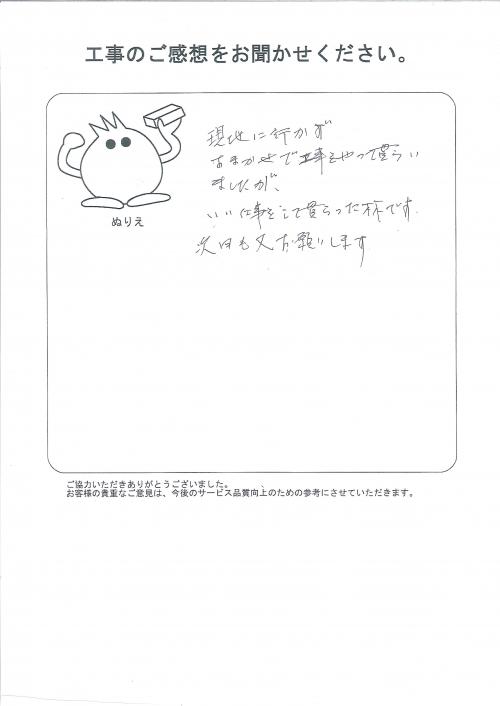 工事のご感想をお聞かせください。
現地に行かず
おまかせで工事をやって貰らい
ましたが、
いい仕事をして貰らった様です。
次回も又お願いします
ぬりえ
ご協力いただきありがとうございました。
お客様の貴重なご意見は、今後のサービス品質向上のための参考にさせていただきます。